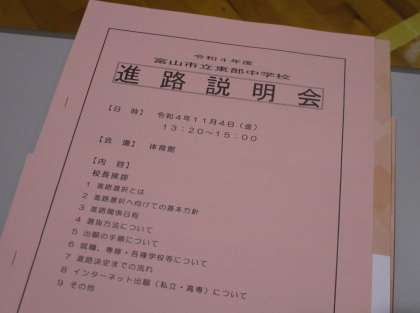 令和4年度
富山市立東部中学校
進路説明会
【日 時】 令和4年11月4日(金)
13:20〜15:00
【会 場】 体育館
【内 容】
校長挨拶
1 進路選択とは
2 進路選択へ向けての基本方針
3 進路関係日程
4 選抜方法について
5 出願の手続について
6 就職、専修・各種学校等について
7 進路決定までの流れ
8 インターネット出願(私立・高専)について
9 その他